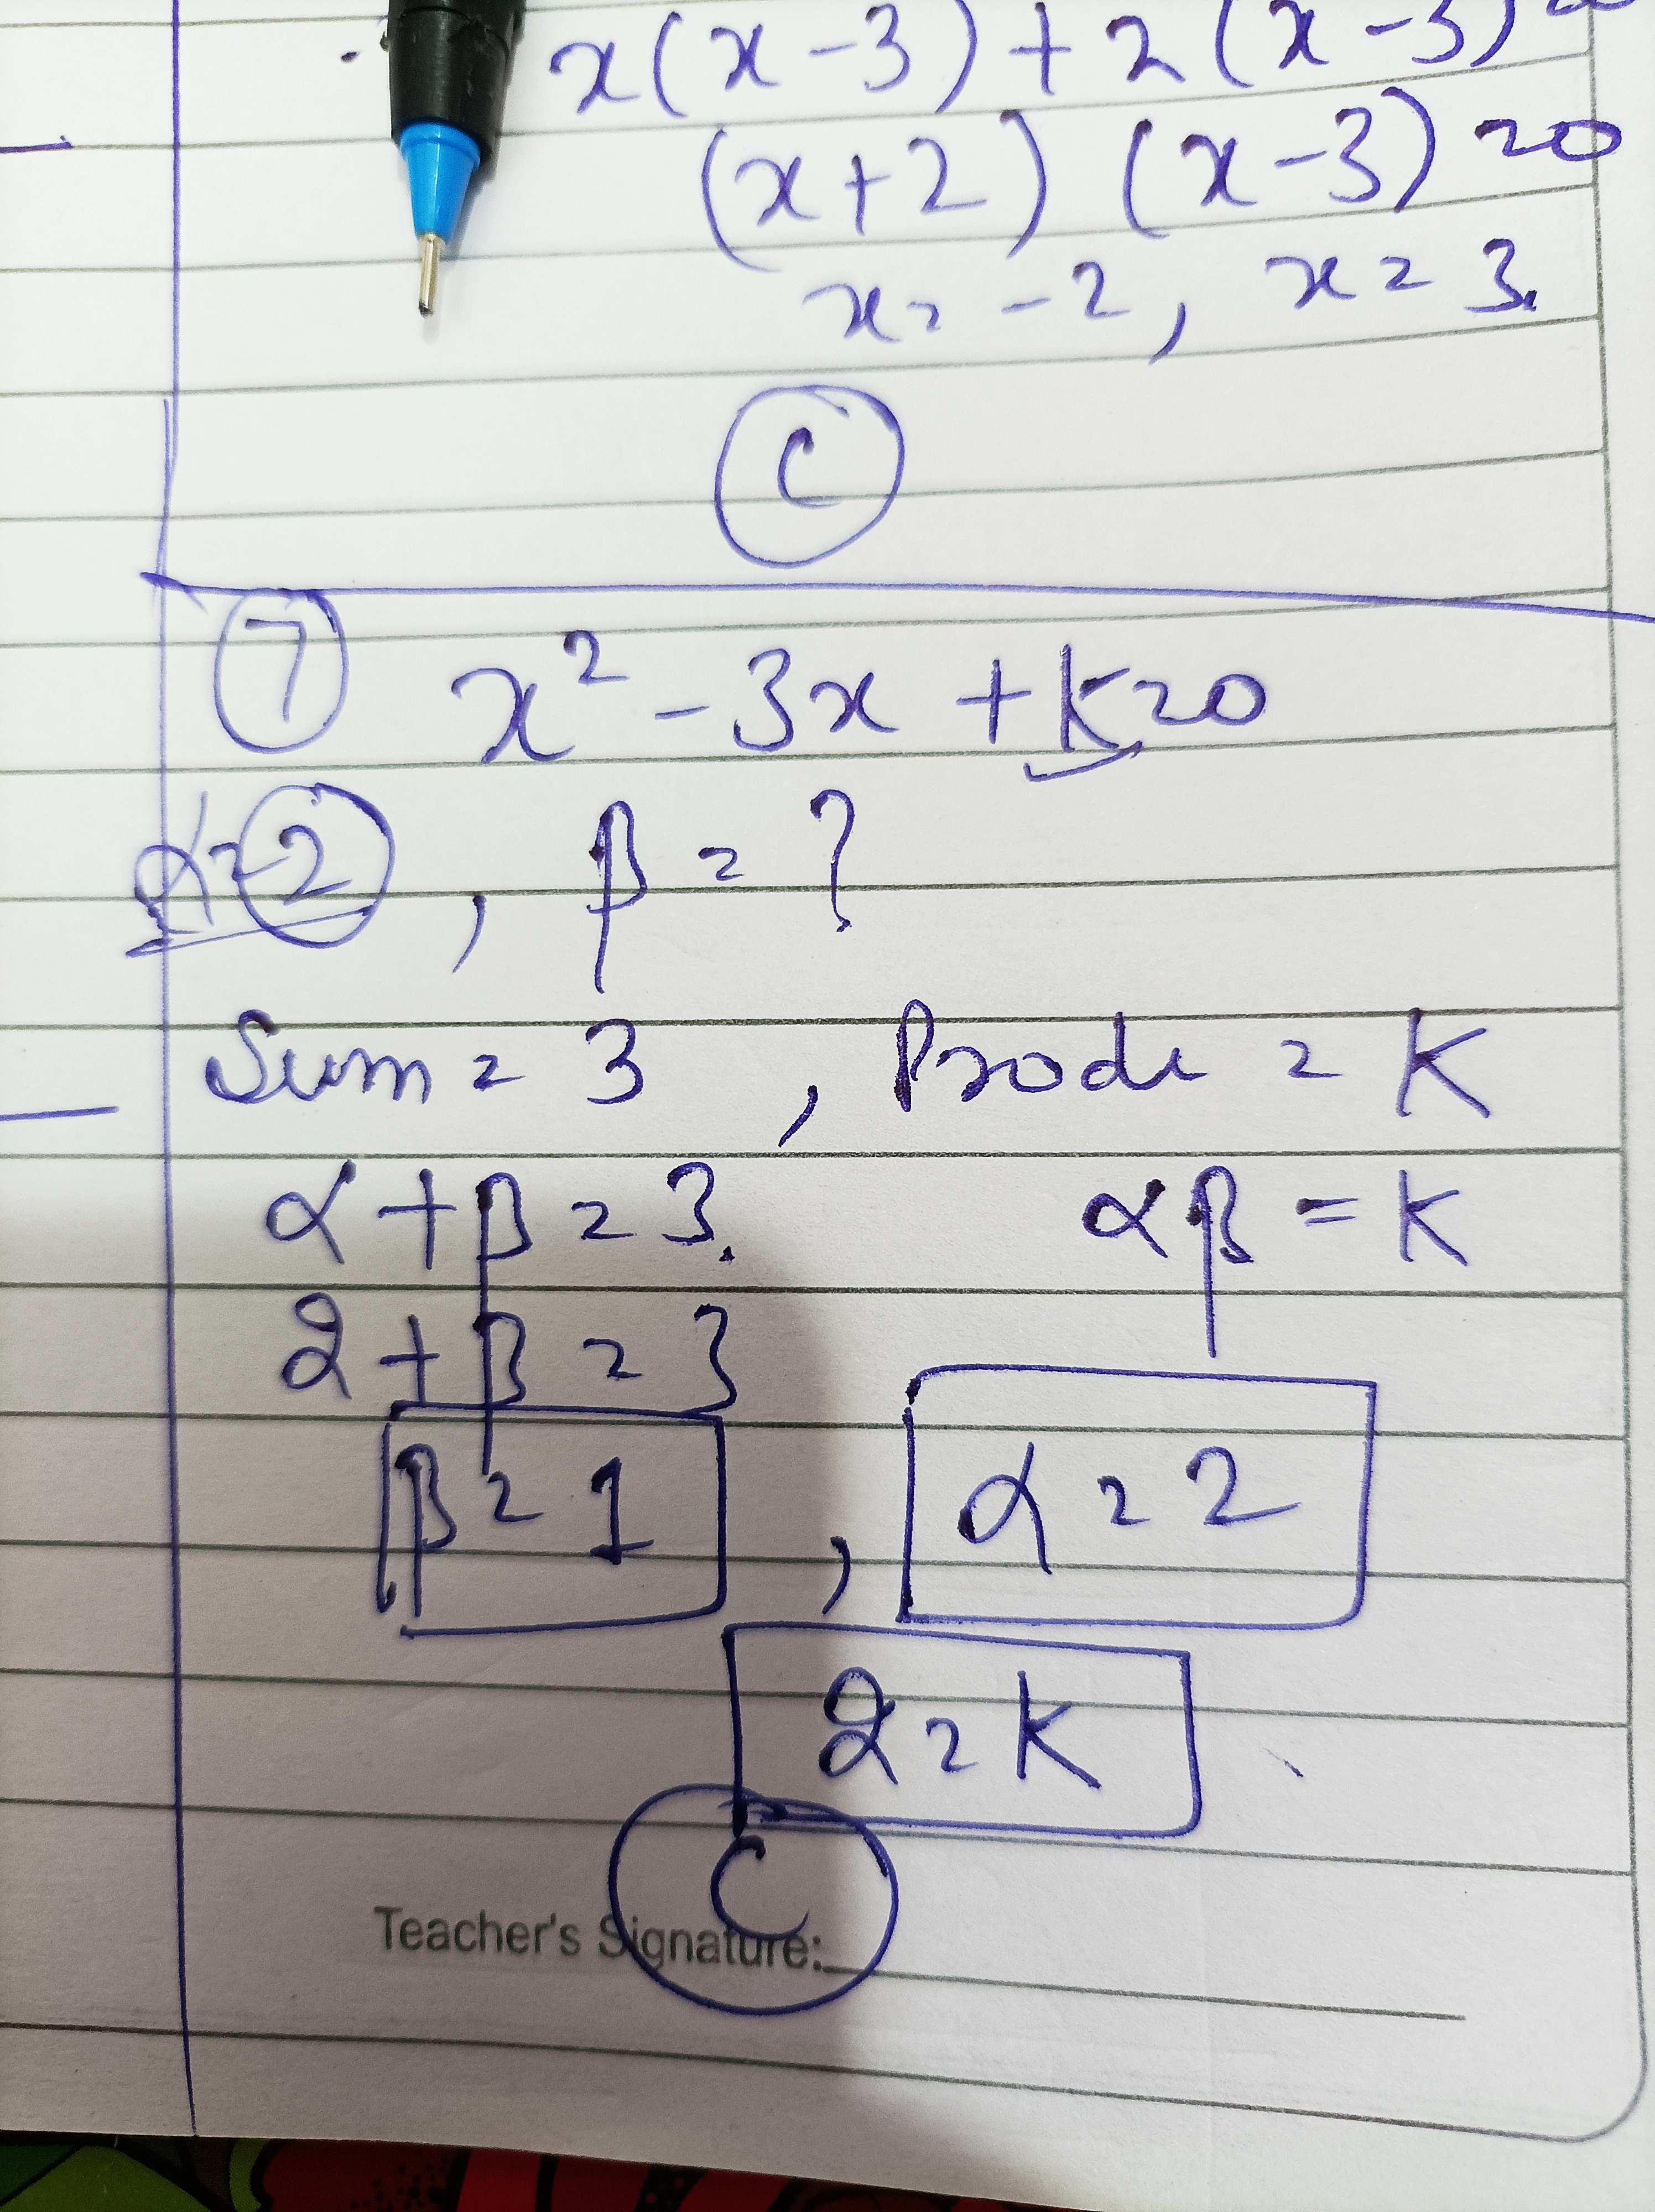 x(x-3)+2(x-3)=0
(x+2) (x-3)=0
x=-2, x=3.
C
7 x²-3x+k=0
α=2, β=?
Sum=3, Prodt=K
α+β=3. αβ=K
2+β=3
β=1, α=2
2=K
C
Teacher's Signature: